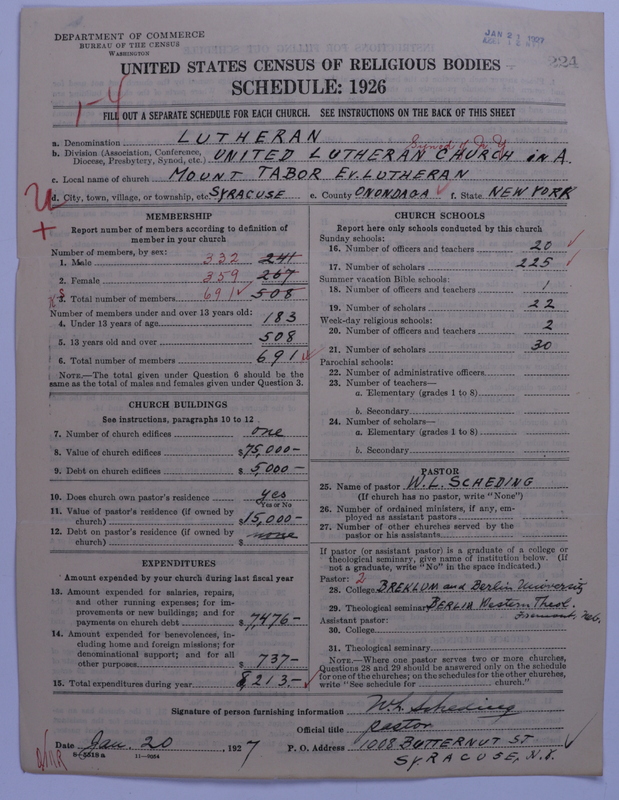 DEPARTMENT OF COMMERCE
BUREAU OF THE CENSUS
WASHINGTON
JAN 21 1927
224
UNITED STATES CENSUS OF RELIGIOUS BODIES
SCHEDULE: 1926
1-4
FILL OUT A SEPARATE SCHEDULE FOR EACH CHURCH. SEE INSTRUCTIONS ON THE BACK OF THIS SHEET
a. Denomination LUTHERAN
Synod of N Y
b. Division (Association, Conference, Diocese, Presbytery, Synod, etc.) UNITED LUTHERAN CHURCH in A.
c. Local name of church MOUNT TABOR EV. LUTHERAN
d. City, town, village, or township, etc. SYRACUSE e. County ONONDAGA f. State NEW YORK
MEMBERSHIP
Report number of members according to definition of
member in your church
Number of members, by sex:
1. Male 332 241
2. Female 359 267
3. Total number of members 691 508
Number of members under and over 13 years old:
4. Under 13 years of age 183
5. 13 years old and over 508
6. Total number of members 691
NOTE.—The total given under Question 6 should be
the same as the total of males and females given under Question 3.
CHURCH BUILDINGS
See instructions, paragraphs 10 to 12
7. Number of church edifices one
8. Value of church edifices $75,000—
9. Debt on church edifices $5,000—
10. Does church own pastor's residence yes
Yes or No
11. Value of pastor's residence (if owned by
church) $15,000—
12. Debt on pastor's residence (if owned by
church) $ none
EXPENDITURES
Amount expended by your church during last fiscal year
13. Amount expended for salaries, repairs,
and other running expenses; for im-
provements or new buildings; and for
payments on church debt $7,476—
14. Amount expended for benevolences, in-
cluding home and foreign missions; for
denominational support; and for all
other purposes 737—
15. Total expenditures during year 8,213.—
CHURCH SCHOOLS
Report here only schools conducted by this church
Sunday schools:
16. Number of officers and teachers 20
17. Number of scholars 225
Summer vacation Bible schools:
18. Number of officers and teachers 1
19. Number of scholars 22
Week-day religious schools:
20. Number of officers and teachers 2
21. Number of scholars 30
Parochial schools:
22. Number of administrative officers
23. Number of teachers—
a. Elementary (grades 1 to 8)
b. Secondary
24. Number of scholars—
a. Elementary (grades 1 to 8)
b. Secondary
PASTOR
25. Name of pastor W. L. SCHEDING
(If church has no pastor, write "None")
26. Number of ordained ministers, if any, em-
ployed as assistant pastors
27. Number of other churches served by the
pastor or his assistants
If pastor (or assistant pastor) is a graduate of a college or
theological seminary, give name of institution below. (If
not a graduate, write "No" in the space indicated.)
Pastor: 2
28. College BREKLUM and Berlin University
29. Theological seminary BERLIN Western Theol.
Fremont, Neb.
Assistant pastor:
30. College
31. Theological seminary
NOTE.—Where one pastor serves two or more churches,
Questions 28 and 29 should be answered only on the schedule
for one of the churches; on the schedules for the other churches,
write "See schedule for church."
Signature of person furnishing information W.L. Scheding
Official title pastor
Date Jan. 20, 1927 P. O. Address 1008 BUTTERNUT ST
SYRACUSE, N.Y.
11—9054